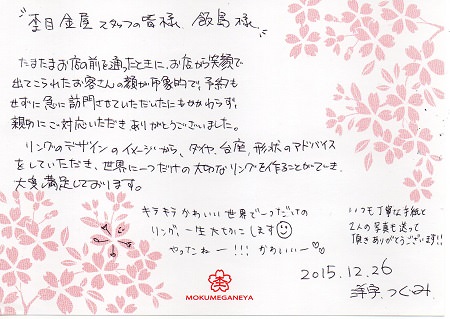 杢目金屋 スタッフの皆様、飯島様、
たまたまお店の前を通ったときに、お店から笑顔で
出てこられたお客さんの顔が印象的で、予約も
せずに急に訪問させていただいたにもかかわらず、
親切にご対応いただきありがとうございました。
リングのデザインのイメージから、ダイヤ、台座、形状のアドバイス
をしていただき、世界に一つだけの大切なリングを作ることができ、
大変満足しております。
キラキラかわいい世界で一つだけの
リング、一生大切にします
やったねー!!! かわいいー♡♡
いつも丁寧な手紙と
2人の写真も送って
頂きありがとうございます!!
2015.12.26
洋平、つぐみ
MOKUMEGANEYA